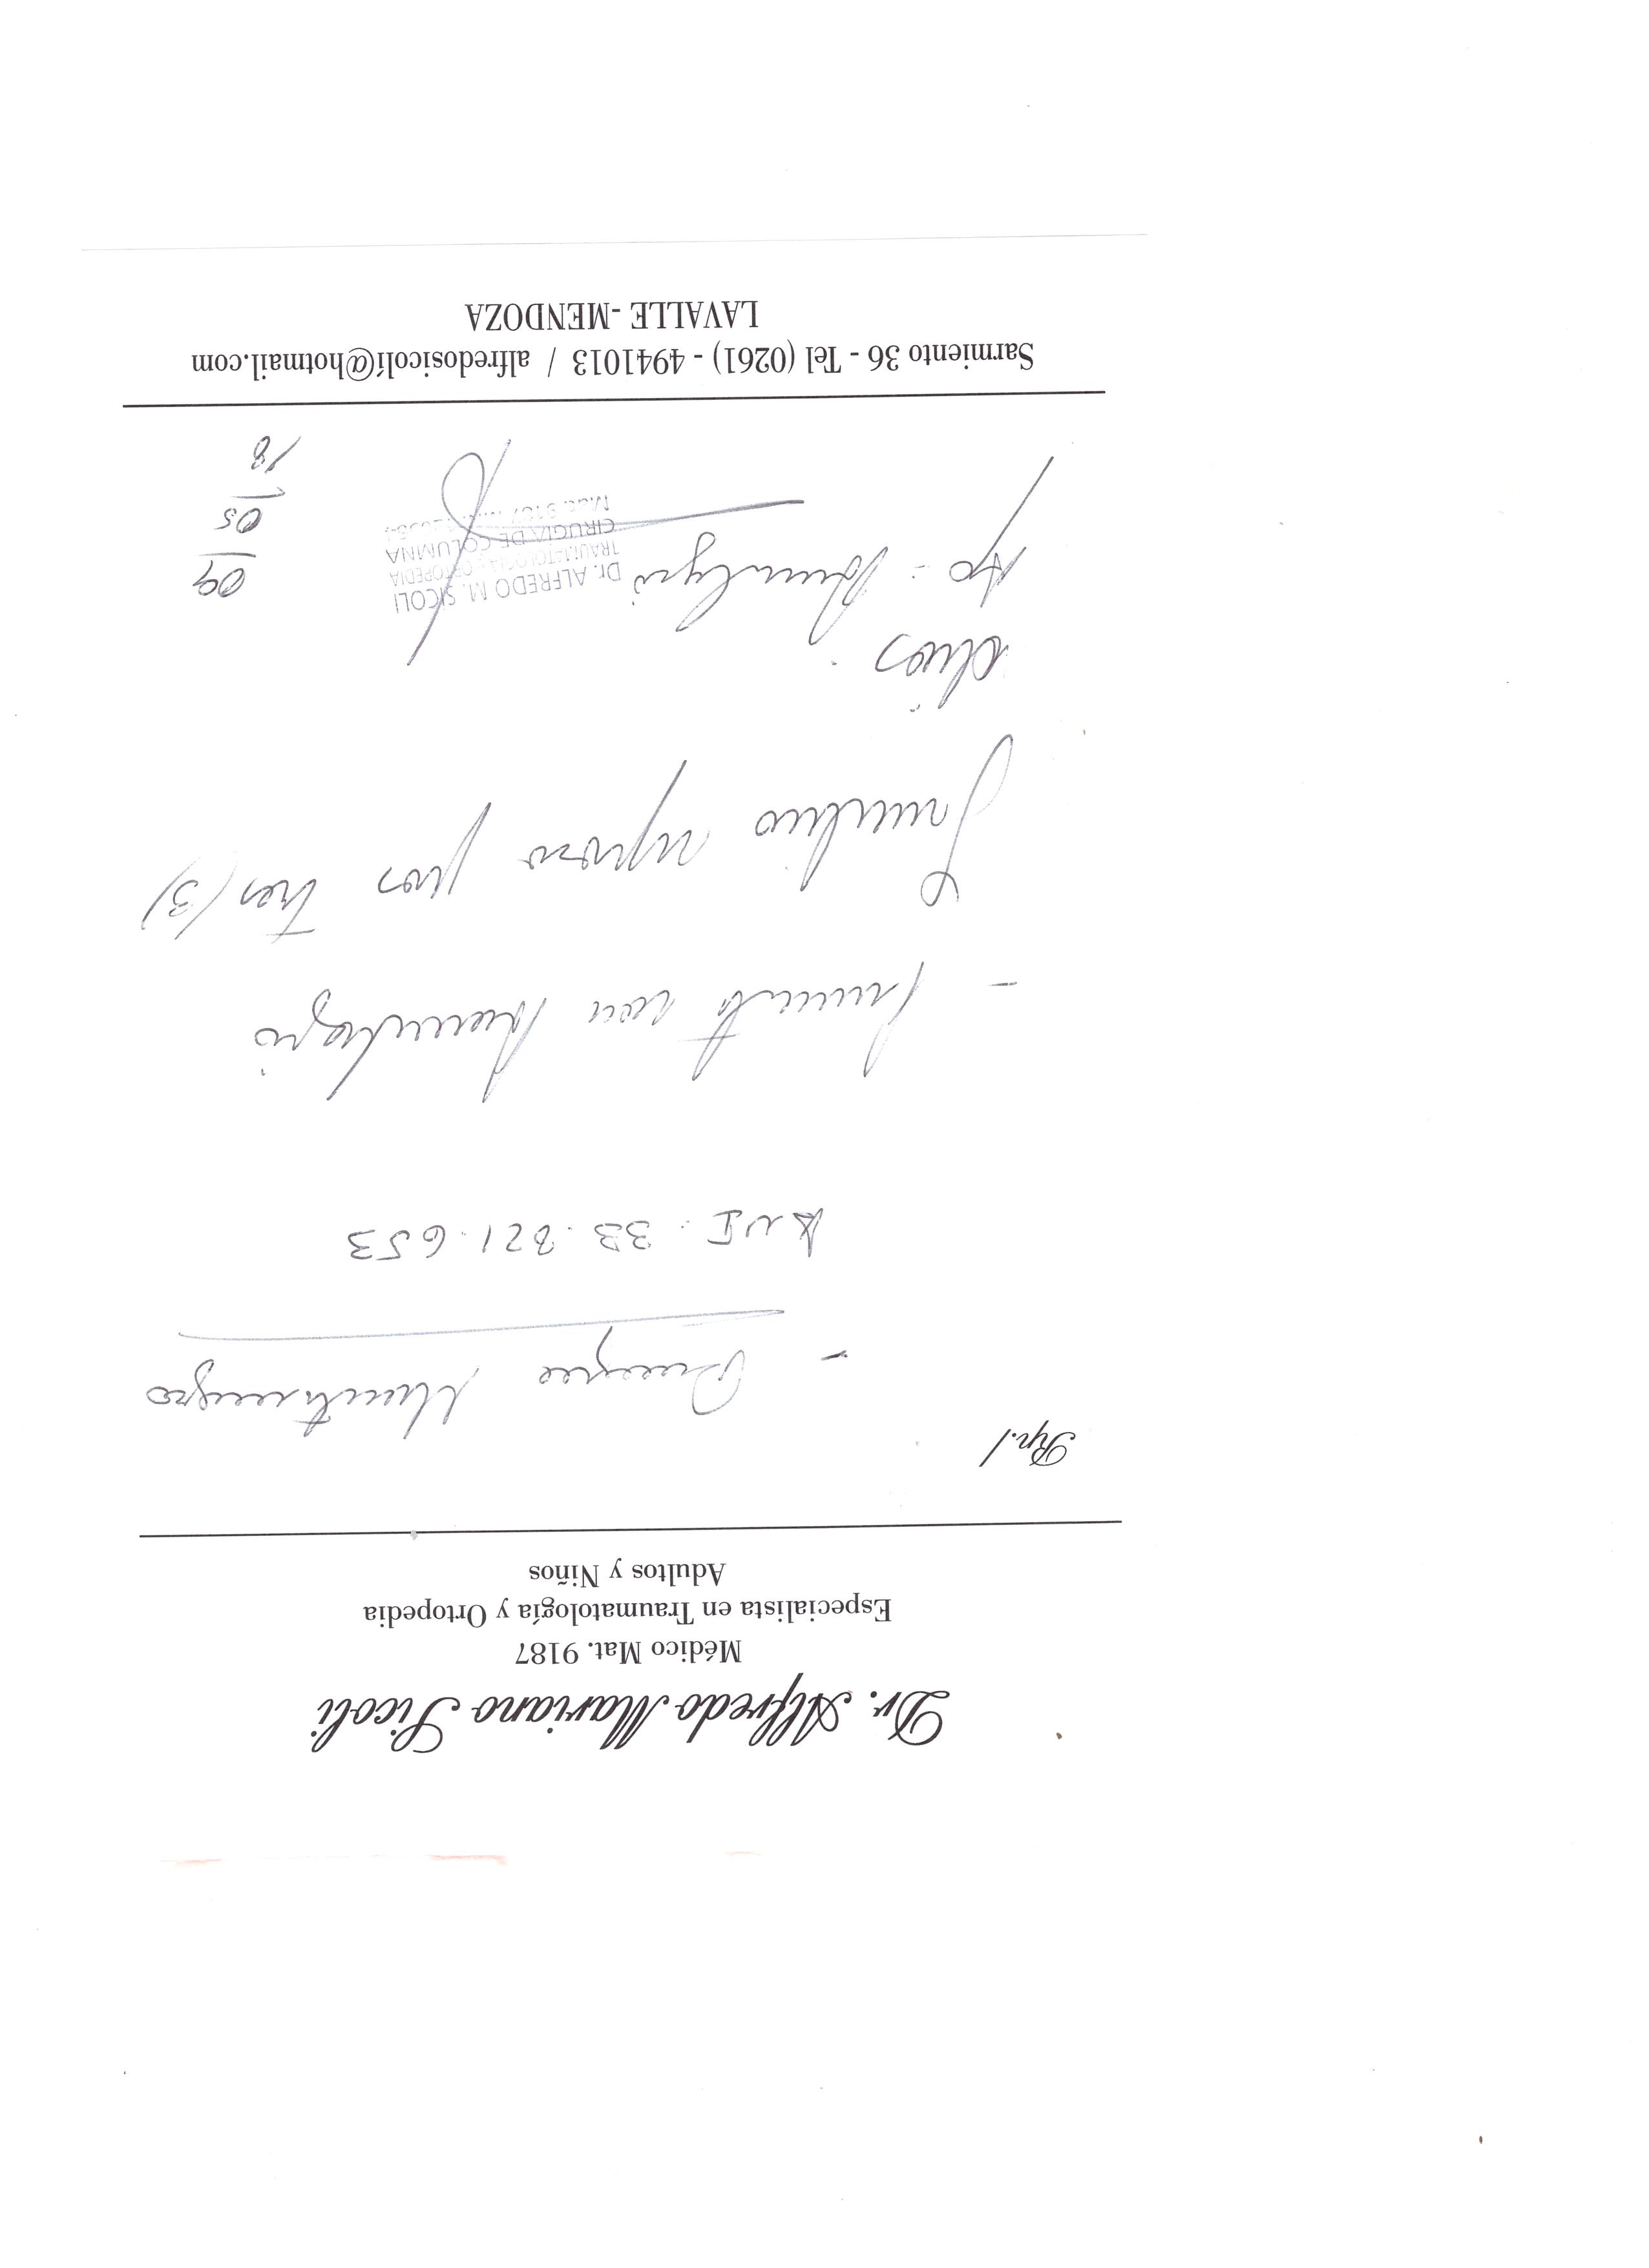 Dr. Alfredo Mariano Sicoli
Médico Mat. 9187
Especialista en Traumatología y Ortopedia
Adultos y Niños
Rp./
-
DNI: 33.821.653
- con lumbalgia
reposo por tres (3)
días.
Lumbalgia
Dr. ALFREDO M. SICOLI
TRAUMATOLOGIA - ORTOPEDIA
CIRUGIA DE COLUMNA
09
05
18
Sarmiento 36 - Tel (0261) - 4941013 / alfredosicolí@hotmail.com
LAVALLE -MENDOZA